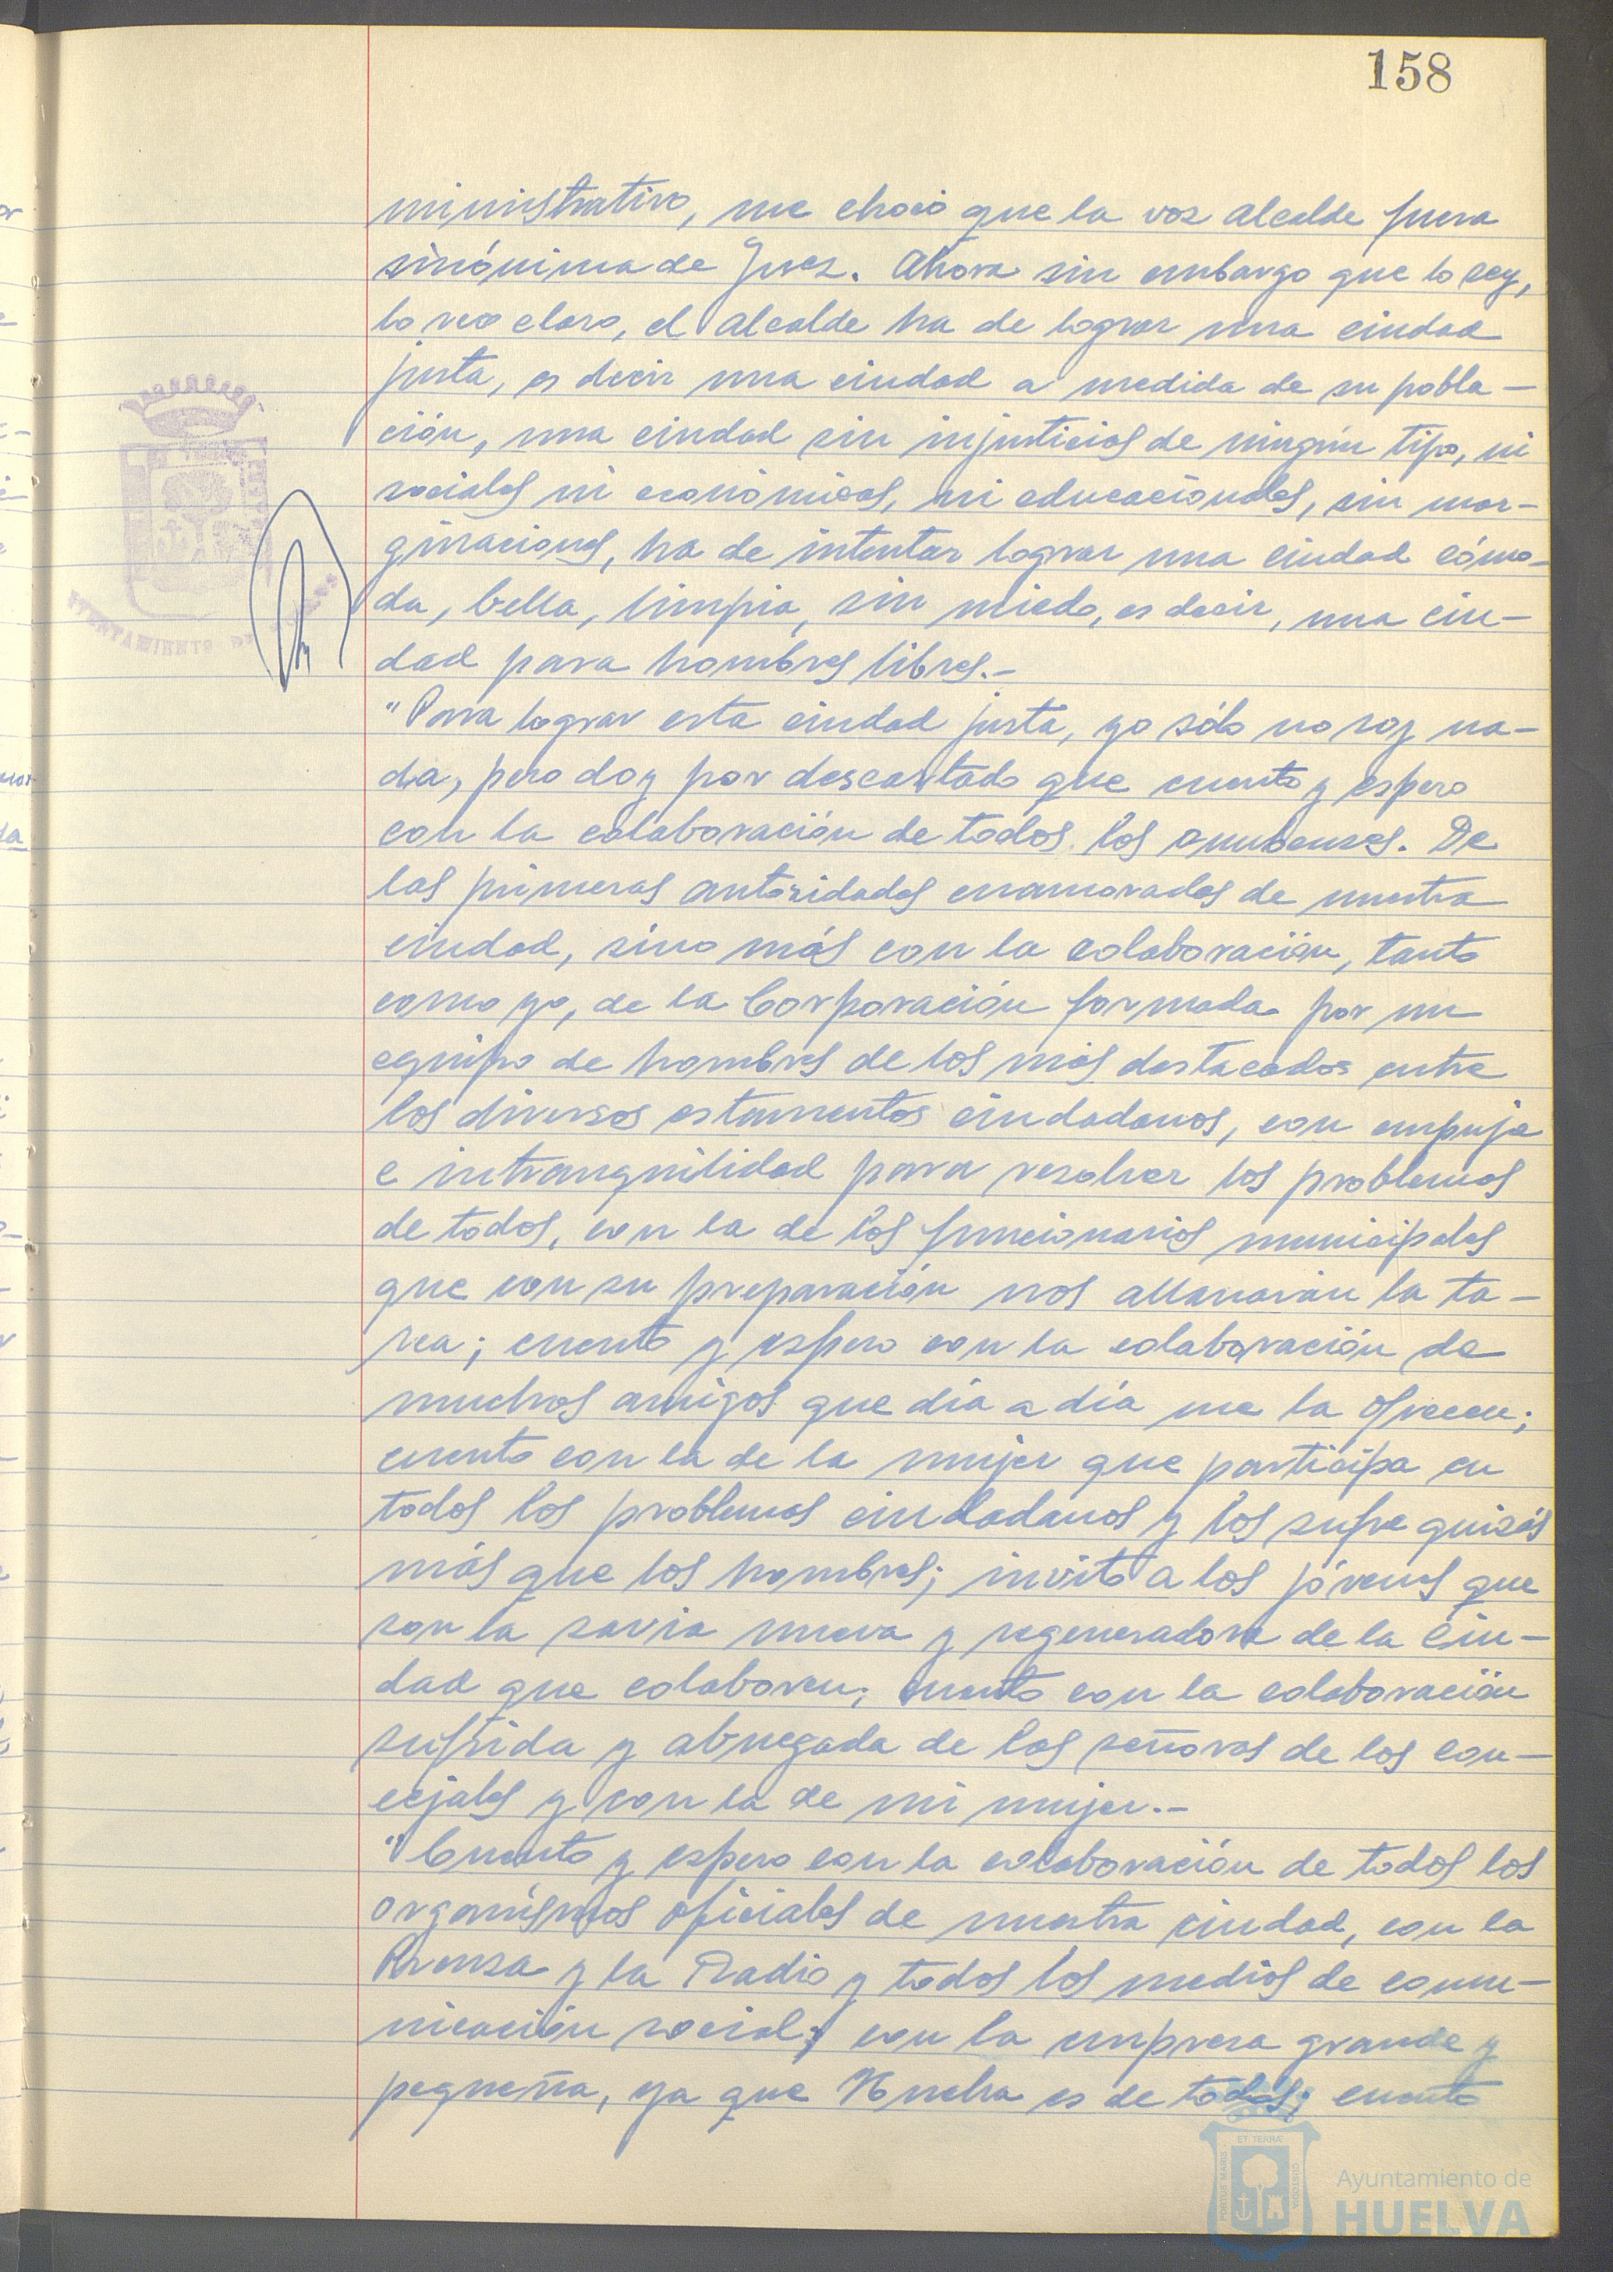 158
ministrativo, me chocó que la voz Alcalde fuera
sinónima de Juez. Ahora sin embargo que lo soy,
lo veo claro, el Alcalde ha de lograr una ciudad
justa, es decir una ciudad a medida de su pobla-
ción, una ciudad sin injusticias de ningún tipo, ni
sociales ni económicas, ni educacionales, sin mar-
ginaciones, ha de intentar lograr una ciudad cómo-
da, bella, limpia, sin miedo, es decir, una ciu-
dad para hombres libres.-
"Para lograr esta ciudad justa, yo sólo no soy na-
da, pero doy por descartado que cuento y espero
con la colaboración de todos los onubenses. De
las primeras autoridades enamorados de nuestra
ciudad, sino más con la colaboración, tanto
como yo, de la Corporación formada por un
equipo de hombres de los más destacados entre
los diversos estamentos ciudadanos, con empuje
e intranquilidad para resolver los problemas
de todos, con la de los funcionarios municipales
que con su preparación nos allanarán la ta-
rea; cuento y espero con la colaboración de
muchos amigos que día a día me la ofrecen;
cuento con la de la mujer que participa en
todos los problemas ciudadanos y los sufre quizás
más que los hombres; invito a los jóvenes que
son la savia nueva y regeneradora de la ciu-
dad que colaboren; cuento con la colaboración
sufrida y abnegada de las señoras de los con-
cejales y con la de mi mujer.-
"Cuento y espero con la colaboración de todos los
organismos oficiales de nuestra ciudad, con la
Prensa y la Radio y todos los medios de comu-
nicación social; con la empresa grande y
pequeña, ya que Huelva es de todos; cuento
AYUNTAMIENTO DE
PORTUS MARIS
ET TERRAE
CUSTODIA
Ayuntamiento de
HUELVA